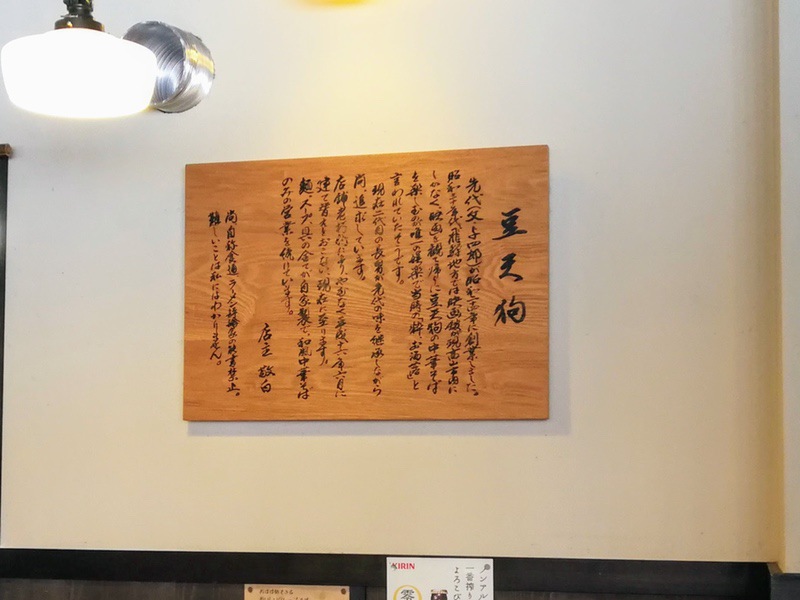 豆天狗
先代(父 与四郎)が昭和二十三年に創業しました。
昭和二十年代、飛騨地方では映画館が現高山市内に
しかなく、映画を観て帰りに豆天狗の中華そば
を楽しむのが唯一の娯楽で当時の「粋・お洒落」と
言われていたそうです。
現在二代目の長男が先代の味を継承しながら
尚追求しています。
店舗老朽的によりやむなく平成十六年六月に
建て替えをおこない、現在に至ります。
麺、スープ、具の全てが自家製で、和風中華そば
のみの営業を続けています。
店主 敬白
尚 自称食通、ラーメン評論家の
難しいことは私にはわかりません。
KIRIN
ノンアル
一番搾り
よろこび
零